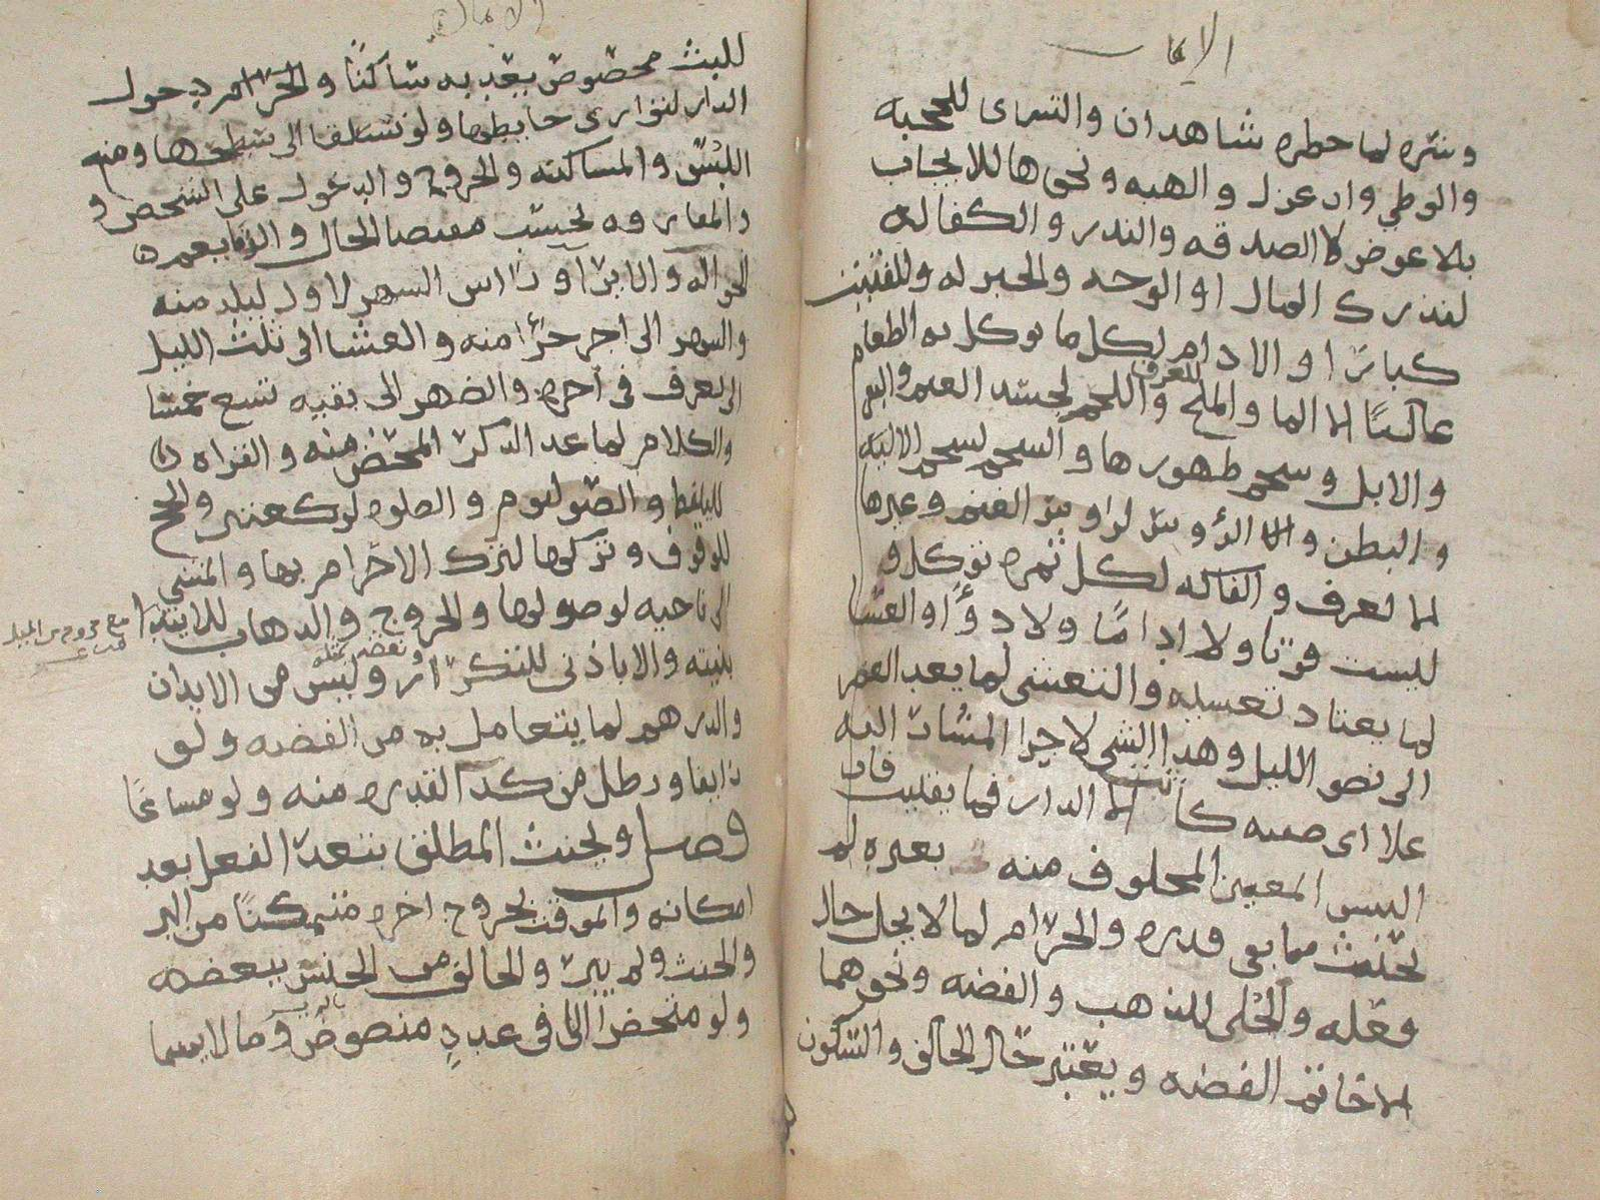 الايمان
وشره لما حظره شاهدان والتسرى للحجبه
والوطي وان عزل والهبه ونحوها للايجاب
بلا عوض لا الصدقه والنذر والكفاله
لتدرك المال او الوجه والخبز له وللفتيت
كبابرا والادام لكل ما يوكل به الطعام
غالبا الا الما والملح للعرف واللحم لجسد الغنم والبقر
والابل وشحم ظهورها والشحم لشحم الاليه
والبطن والا الرؤوس لرووس الغنم وغيرها
الا لعرف والفاكهه لكل ثمره توكل و
ليست قوتا ولا اداما ولا دوآ والعشا
لما يعتاد تعشيه والتعشى لما بعد العصر
الى نصف الليل وهذا الشي لاجزا المشار اليه
على اى صفه كانت الا الدار فما بقيت فان
التبس المعين المحلوف منه بغيره لم
يحنث ما بقى قدره والحرام لما لا يحل حال
فعله والحُلى للذهب والفضه ونحوهما
الا خاتم الفضه ويعتبر حال الحالف والسكون
الايمان
للبث مخصوص يعد به ساكنا والحرام دخول
الدار لتوارى حايطها ولو تسلقا الى سطحها ومنع
اللبس والمساكنه والخروج والدخول على الشخص و
والمفارقه بحسب مقتضا الحال والوفا يعم
الحواله والابرا وراس الشهر لاول ليله منه
والشهر الى اخر جزؤ منه والعشا الى ثلث الليل
الا لعرف فى آخره والظهر الى بقيه تسع خمسا
والكلام لما عدا الذكر المحض منه والقراه
للتلفظ والصوم ليوم والصلوه لركعتين والحج
للوقوف وتركها لترك الاحرام بها والمشي
الى ناحيه لوصولها والخروج والذهاب للابتدا
بنيته والا باذنى للتكرار وليس من الايذان
والدرهم لما يتعامل به من الفضه ولو
زايفا ورطل من كذا لقدره منه ولو مشاعًا
فصل ويحنث المطلق بتعذر الفعل بعد
امكانه والموقت بخروج اخره متمكنا من البر
والحنث ولم يبر والحالف من الجنس ببعضه
ولو منحصرا الا فى عددٍ منصوص وما لا يسما